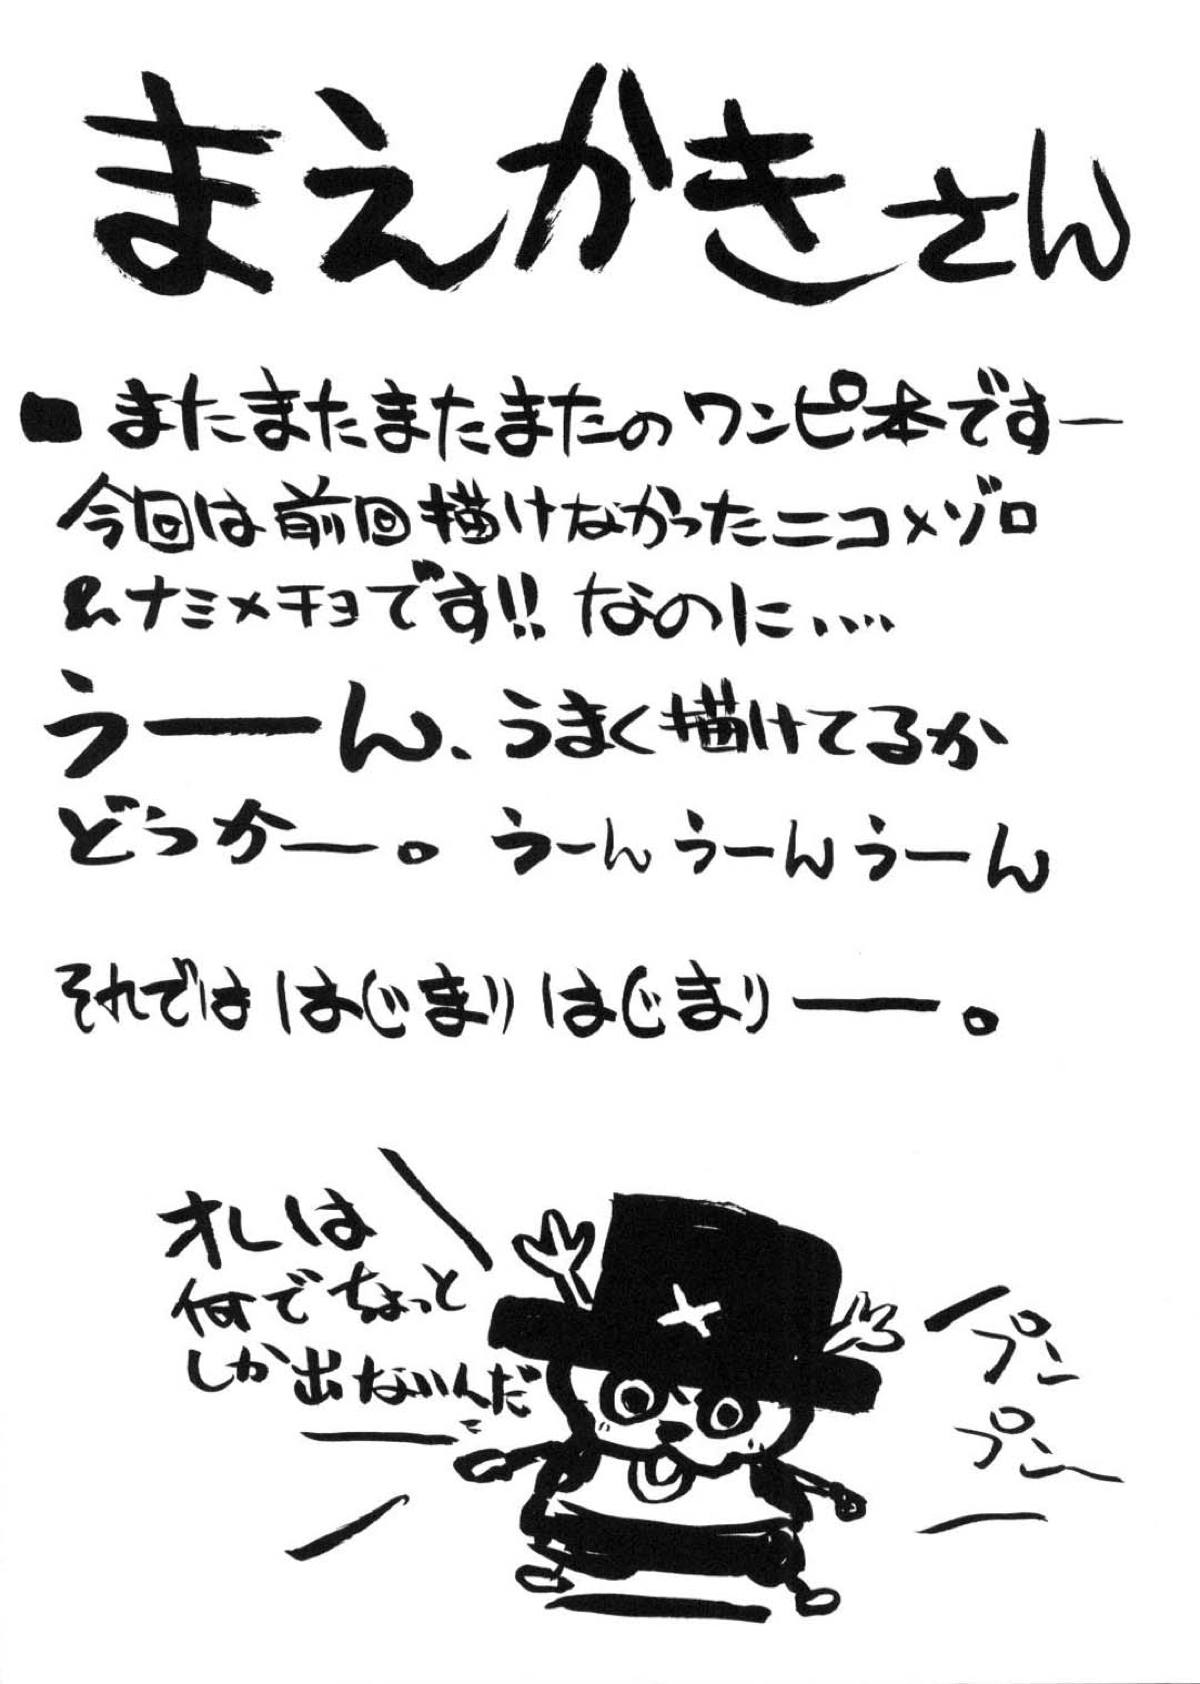 まえかきさん
■またまたまたまたのワンピ本ですー
今回は前回描けなかったニコ×ゾロ
&ナミ×チョです!!なのに、、、、
うーん、うまく描けてるか
どうかー。うーんうーんうーん
それでははじまりはじまりー。
オレは
何でちょっと
しか出ないんだ
プン
プン